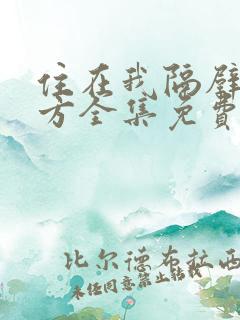 住在我隔壁
方全集免費
比尔德布拉西
未经同意禁止转载